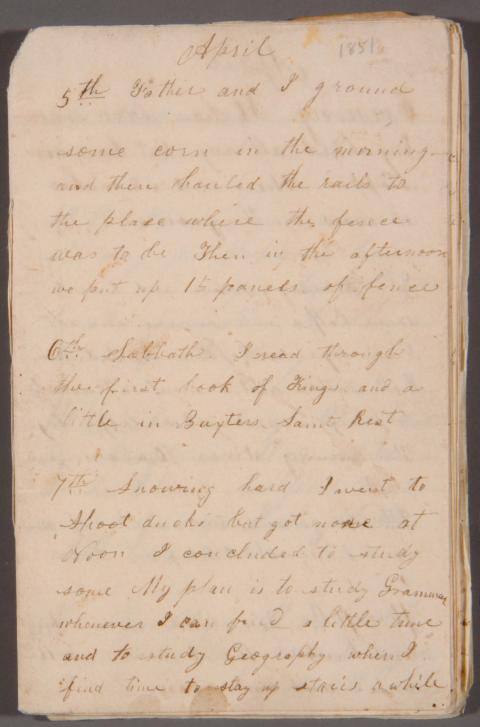 April 1851
5th Father and I ground
some corn in the morning
and then hauled the rails to
the place where the fence
was to be Then in the afternoon
we put up 15 panels of fence
6th Sabbath. I read through
the first book of Kings and a
little in Baxters Saint Rest
7th Snowing hard I went to
shoot ducks but got none at
Noon I concluded to study
some My plan is to study Grammar
whenever I can find a little time
and to study Geography when I
find time to stay up stairs awhile